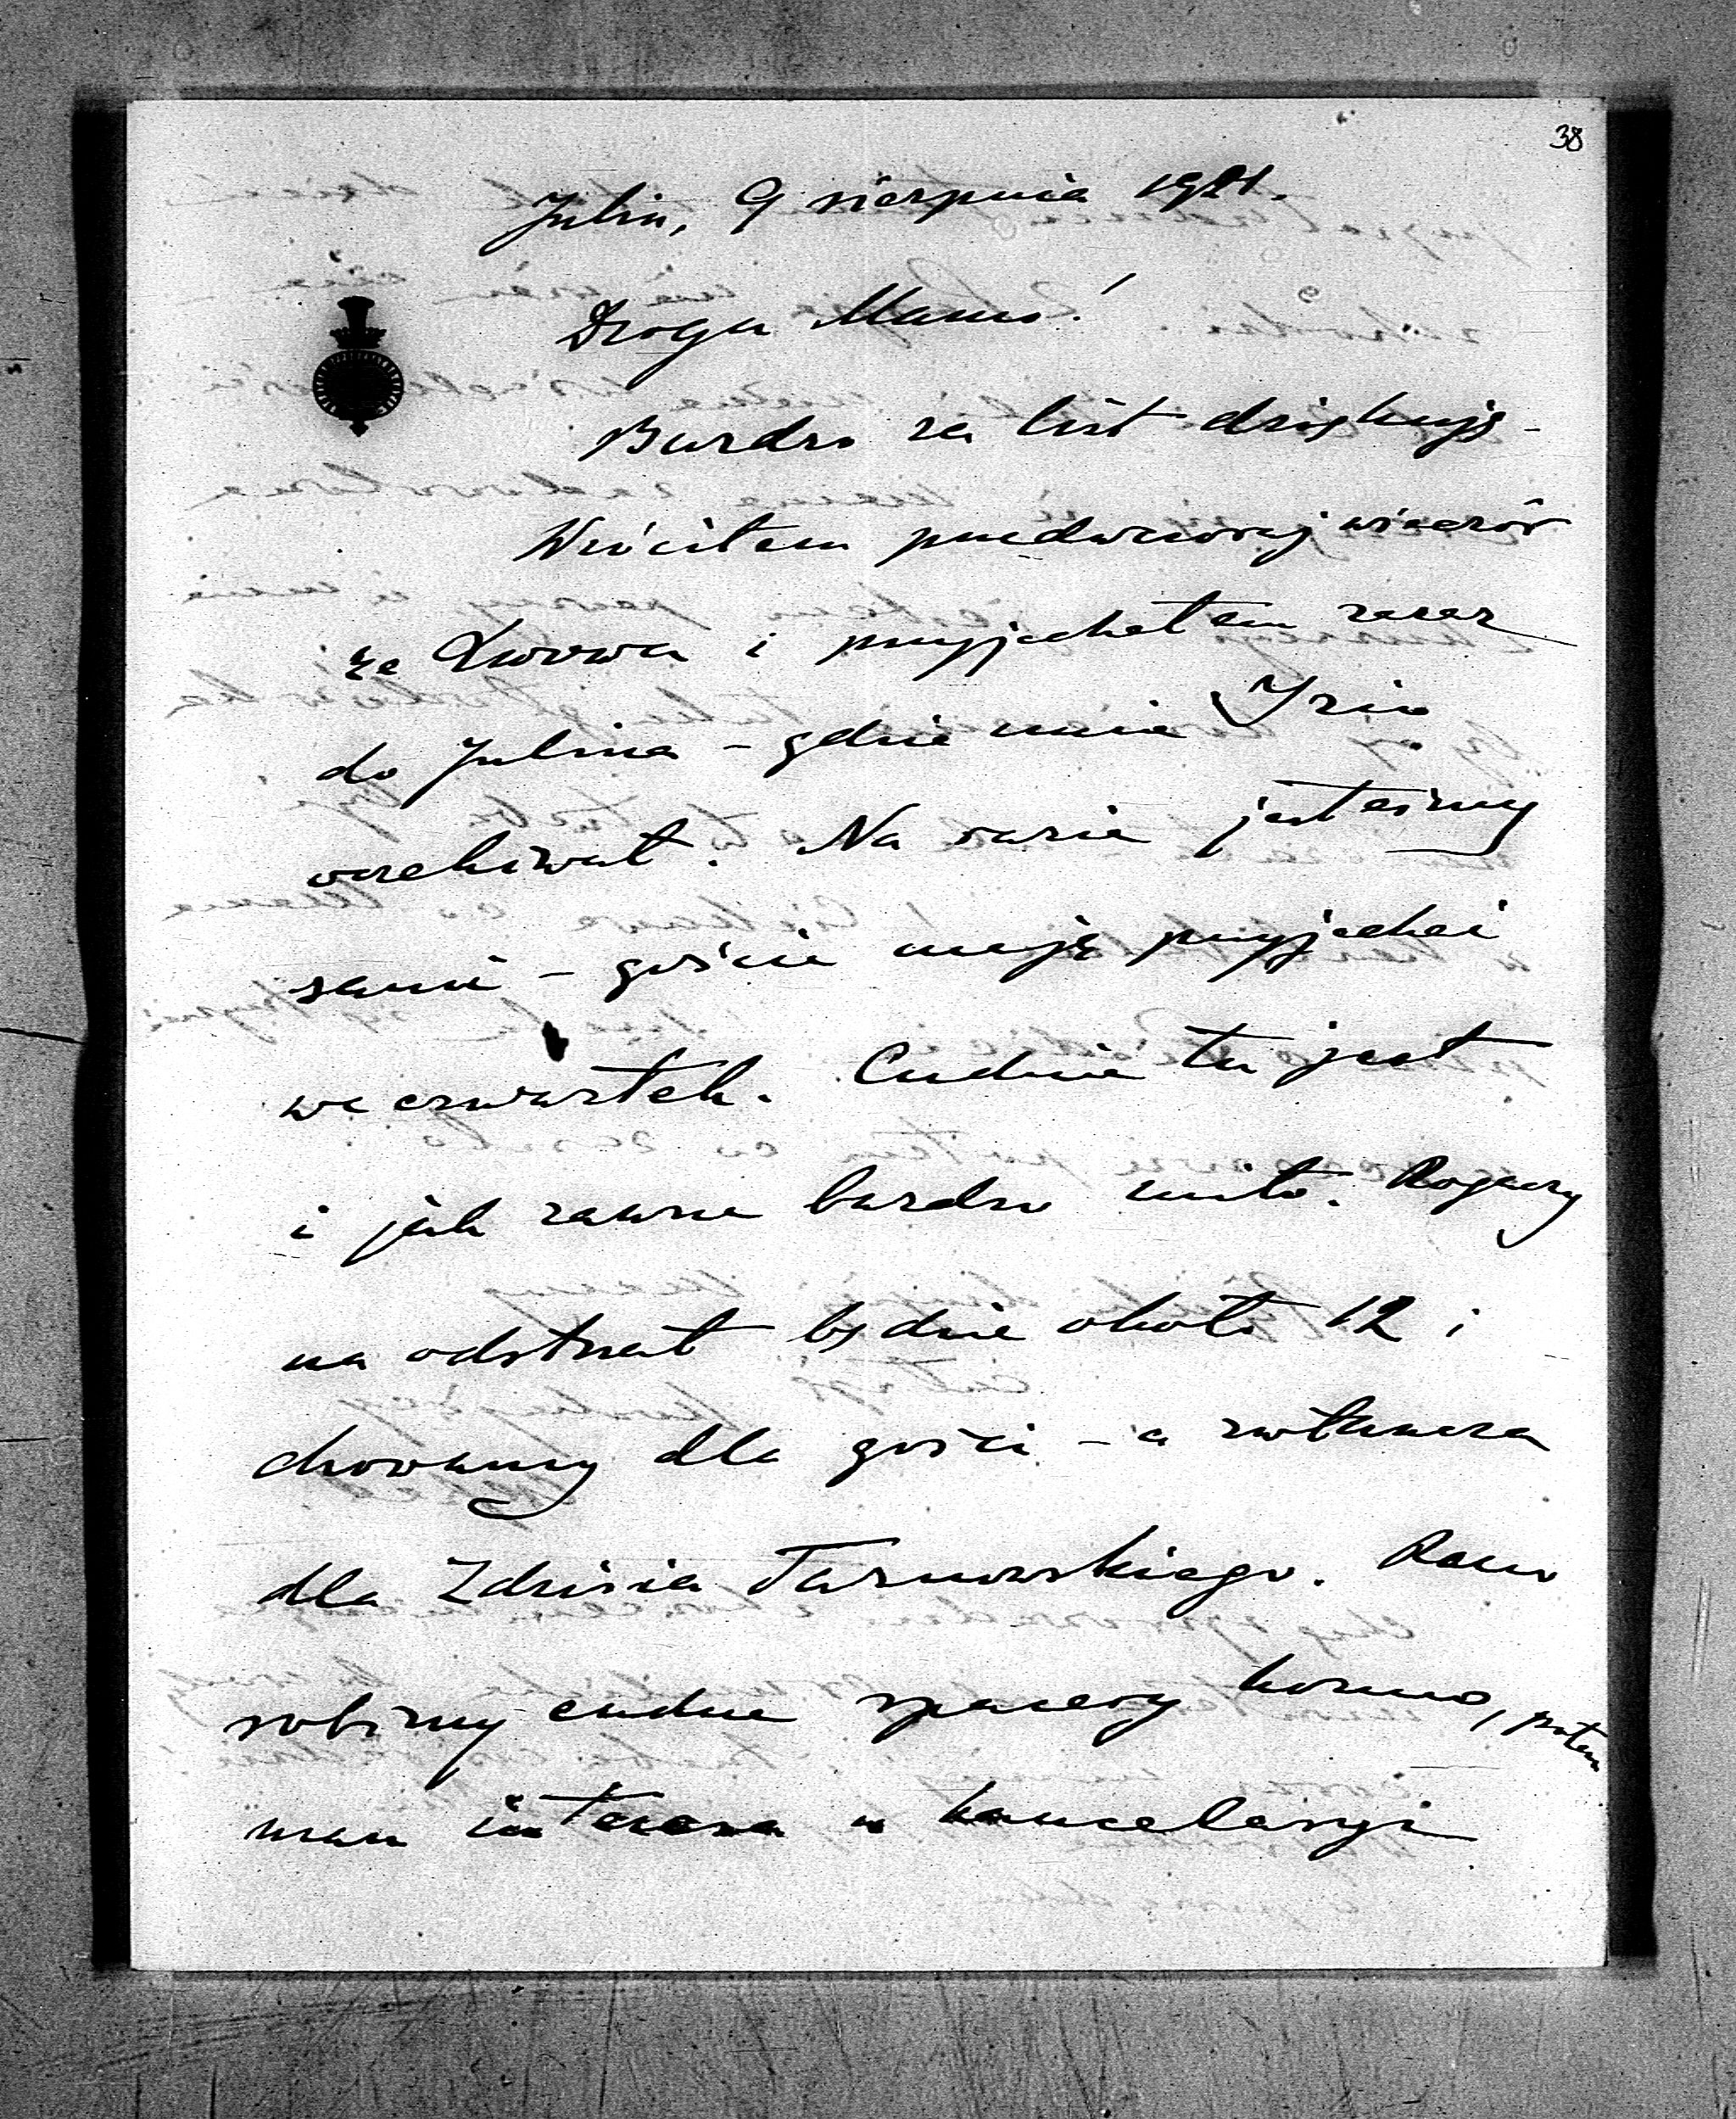 38
Julin, 9 sierpnia 1921.
Droga Mamo!
Bardzo za list dziękuję -
Wróciłem przedwczoraj wieczór
ze Lwowa i przyjechałem zaraz
do Julina - gdzie mnie Izio
oczekiwał. Na razie jesteśmy
sami - goście mają przyjechać
we czwartek. Cudnie tu jest
i jak zawsze bardzo miło. Rogaczy
na odstrzał będzie około 12 i
chowamy dla gości - a zwłaszcza
dla Zdzisia Tarnowskiego. Rano
robimy cudne spacery konno, potem
mam interesa w kancelaryi